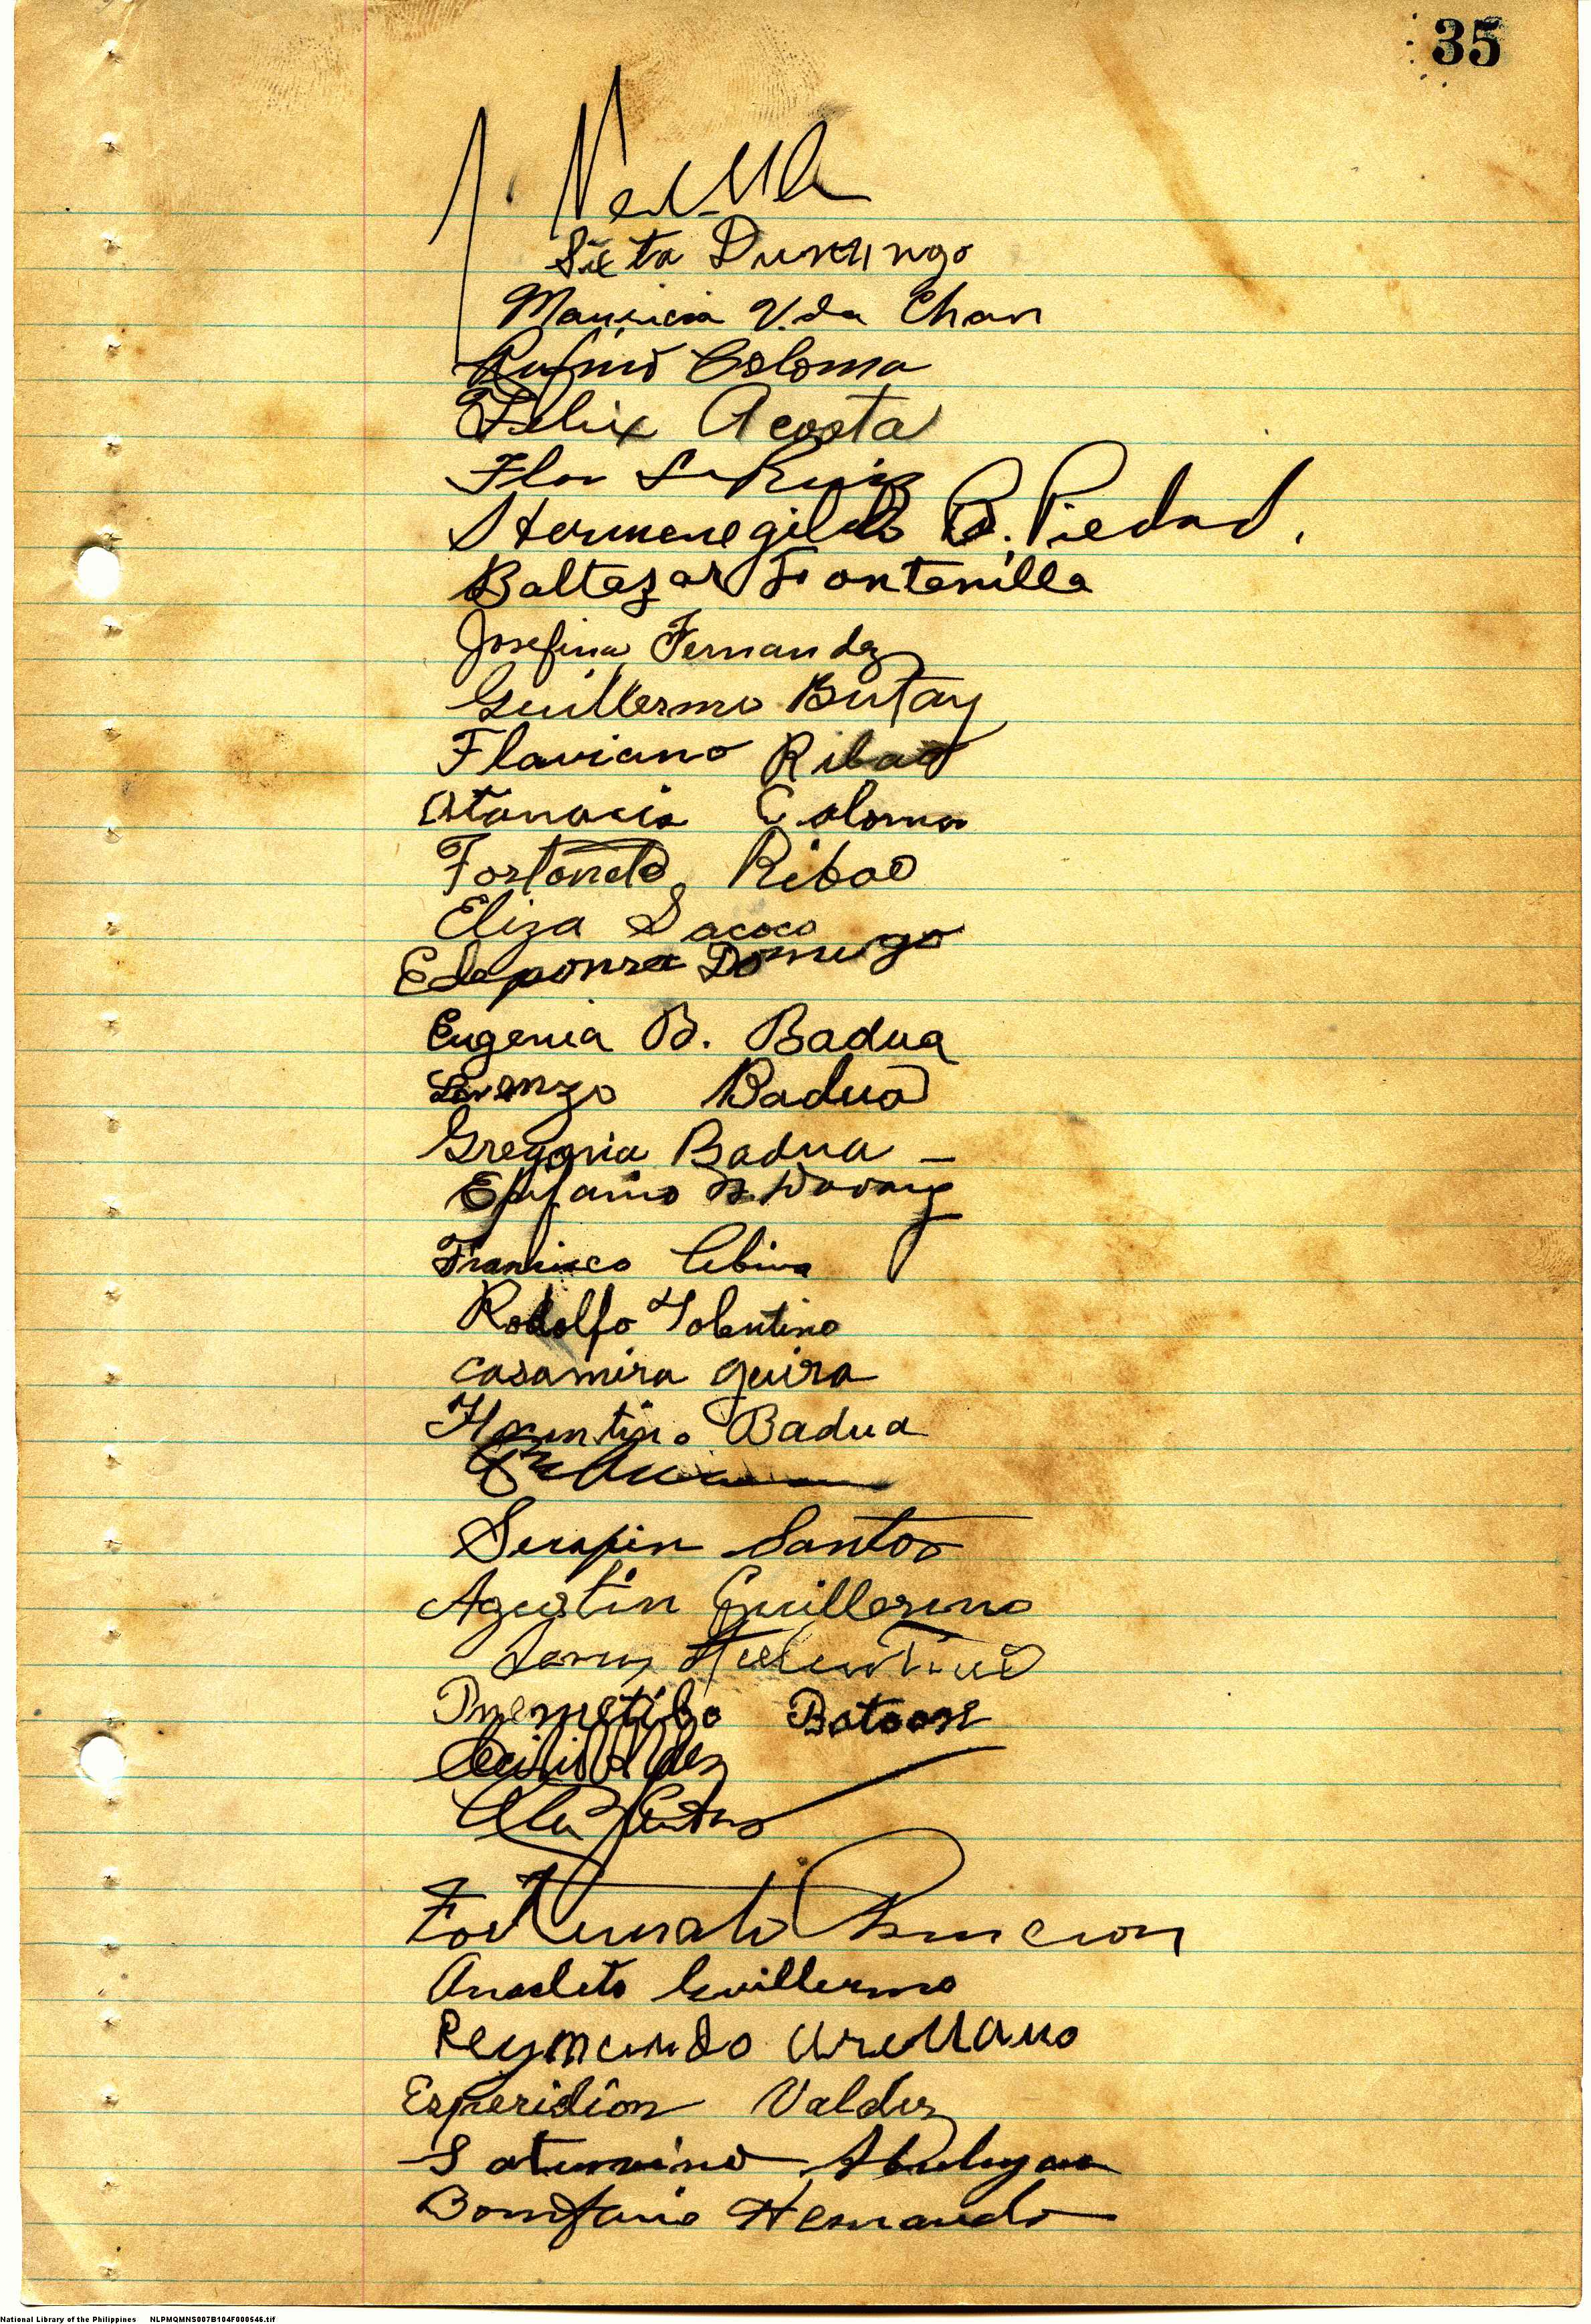 35
Sixta Dumingo
Mauricia V. da Chan
Rufino Coloma
Felix Acosta
Flor Ruiz
Hermenegildo B. Piedad.
Baltazar Fontanilla
Josefina Fernandez
Guillermo Butay
Flaviano Ribao
Atanacia Coloma
Fortonato Ribao
Eliza Sacoco
Edeponsa Domingo
Eugenia B. Badua
Lorenzo Badua
Gregoria Badua
Epifanio
Francisco
Rodolfo Tolentino
Casamira Guira
Badua
Serapin Santos
Agustin Guillermo
Primitibo Batoon
Fortunato Asuncion
Anacleto Guillermo
Reymundo Arellano
Esperidion Valdez
Saturnino
Bonifacio Hernando
National Library of the Philippines NLPMQMNS007B104F000546.tif